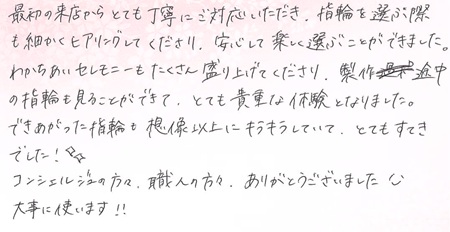 最初の来店からとても丁寧にご対応いただき、指輪を選ぶ際
も細かくヒアリングしてくださり、安心して楽しく選ぶことができました。
わかちあいセレモニーもたくさん盛り上げてくださり、製作途中
の指輪も見ることができて、とても貴重な体験となりました。
できあがった指輪も想像以上にキラキラしていて、とてもすてき
でした！
コンシェルジュの方々、職人の方々、ありがとうございました
大事に使います！！